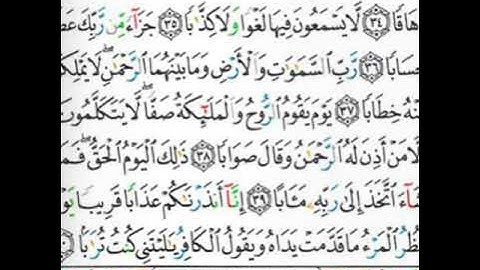 هَاقًا ٣٤ لَّا يَسْمَعُونَ فِيهَا لَغْوًا وَلَا كِذَّٰبًا ٣٥ جَزَآءً مِّن رَّبِّكَ عَ
سَابًا ٣٦ رَّبِّ ٱلسَّمَٰوَٰتِ وَٱلْأَرْضِ وَمَا بَيْنَهُمَا ٱلرَّحْمَٰنِ ۖ لَا يَمْلِك
نْهُ خِطَابًا ٣٧ يَوْمَ يَقُومُ ٱلرُّوحُ وَٱلْمَلَٰٓئِكَةُ صَفًّا ۖ لَّا يَتَكَلَّمُون
لَّا مَنْ أَذِنَ لَهُ ٱلرَّحْمَٰنُ وَقَالَ صَوَابًا ٣٨ ذَٰلِكَ ٱلْيَوْمُ ٱلْحَقُّ ۖ فَم
آءَ ٱتَّخَذَ إِلَىٰ رَبِّهِۦ مَـَٔابًا ٣٩ إِنَّآ أَنذَرْنَٰكُمْ عَذَابًا قَرِيبًا يَوْ
ظُرُ ٱلْمَرْءُ مَا قَدَّمَتْ يَدَاهُ وَيَقُولُ ٱلْكَافِرُ يَٰلَيْتَنِى كُنتُ تُرَٰبًۢا